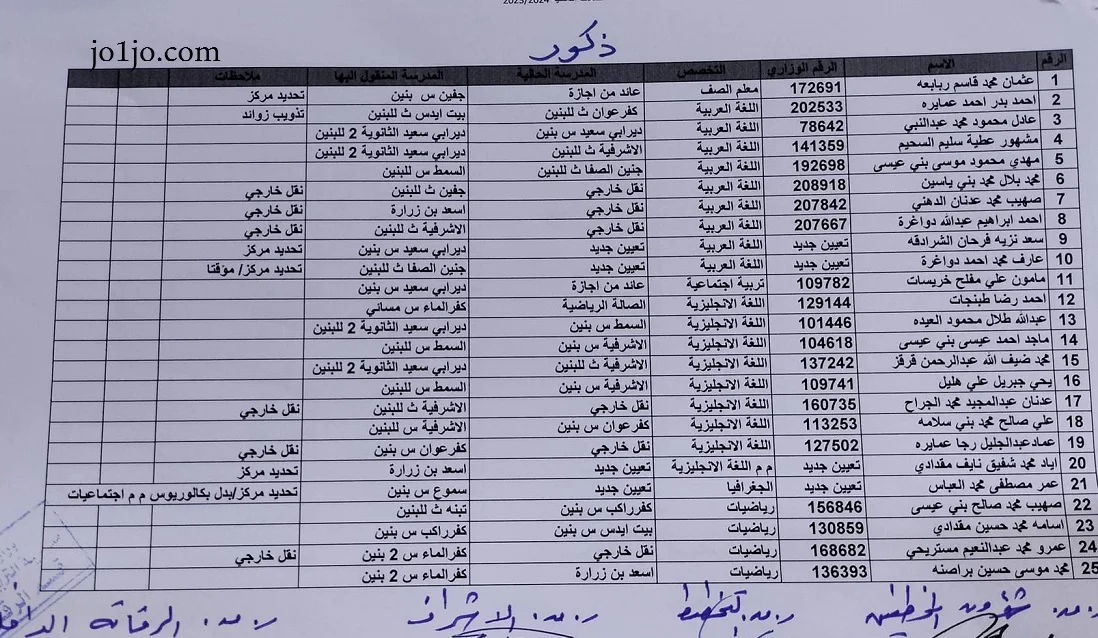 2023/2024
ذكور
jo1jo.com
الرقم الاسم الرقم الوزاري التخصص المدرسة الحالية المدرسة المنقول اليها ملاحظات
1 عثمان محمد قاسم ربابعه 172691 معلم الصف عائد من اجازة جفين س بنين تحديد مركز
2 احمد بدر احمد عمايره 202533 اللغة العربية كفرعوان ث للبنين بيت ايدس ث للبنين تذويب زوائد
3 عادل محمود محمد عبدالنبي 78642 اللغة العربية ديرابي سعيد س بنين ديرابي سعيد الثانوية 2 للبنين
4 مشهور عطية سليم السحيم 141359 اللغة العربية الاشرفية ث للبنين ديرابي سعيد الثانوية 2 للبنين
5 مهدي محمود موسى بني عيسى 192698 اللغة العربية جنين الصفا ث للبنين السمط س للبنين
6 محمد بلال محمد بني ياسين 208918 اللغة العربية نقل خارجي جفين ث للبنين نقل خارجي
7 صهيب محمد عدنان الدهني 207842 اللغة العربية نقل خارجي اسعد بن زرارة نقل خارجي
8 احمد ابراهيم عبدالله دواغرة 207667 اللغة العربية نقل خارجي الاشرفية ث للبنين نقل خارجي
9 سعد نزيه فرحان الشرادقه تعيين جديد اللغة العربية تعيين جديد ديرابي سعيد س بنين تحديد مركز
10 عارف محمد احمد دواغرة تعيين جديد اللغة العربية تعيين جديد جنين الصفا ث للبنين تحديد مركز/ مؤقتا
11 مامون علي مفلح خريسات 109782 تربية اجتماعية عائد من اجازة ديرابي سعيد س بنين
12 احمد رضا طبنجات 129144 اللغة الانجليزية الصالة الرياضية كفرالماء س مسائي
13 عبدالله طلال محمود العيده 101446 اللغة الانجليزية السمط س بنين ديرابي سعيد الثانوية 2 للبنين
14 ماجد احمد عيسى بني عيسى 104618 اللغة الانجليزية الاشرفية س بنين السمط س للبنين
15 محمد ضيف الله عبدالرحمن قرقز 137242 اللغة الانجليزية الاشرفية ث للبنين ديرابي سعيد الثانوية 2 للبنين
16 يحي جبريل علي هليل 109741 اللغة الانجليزية الاشرفية س بنين السمط س للبنين
17 عدنان عبدالمجيد محمد الجراح 160735 اللغة الانجليزية نقل خارجي الاشرفية ث للبنين نقل خارجي
18 علي صالح محمد بني سلامه 113253 اللغة الانجليزية كفرعوان س بنين الاشرفية س للبنين
19 عمادعبدالجليل رجا عمايره 127502 اللغة الانجليزية نقل خارجي كفرعوان س بنين نقل خارجي
20 اياد محمد شفيق نايف مقدادي تعيين جديد م م اللغة الانجليزية تعيين جديد اسعد بن زرارة تحديد مركز
21 عمر مصطفى محمد العباس تعيين جديد الجغرافيا تعيين جديد سموع س بنين تحديد مركز/بدل بكالوريوس م م اجتماعيات
22 صهيب محمد صالح بني عيسى 156846 رياضيات كفرراكب س بنين تبنه ث للبنين
23 اسامه محمد حسين مقدادي 130859 رياضيات بيت ايدس س بنين كفرراكب س بنين
24 عمرو محمد عبدالنعيم مستريحي 168682 رياضيات نقل خارجي كفرالماء س 2 بنين نقل خارجي
25 محمد موسى حسين براصنه 136393 رياضيات اسعد بن زرارة كفرالماء س 2 بنين
ر.مد. شؤون الموظفين ر.مد. التخطيط ر.مد. الاشراف ر.مد. الرقابة